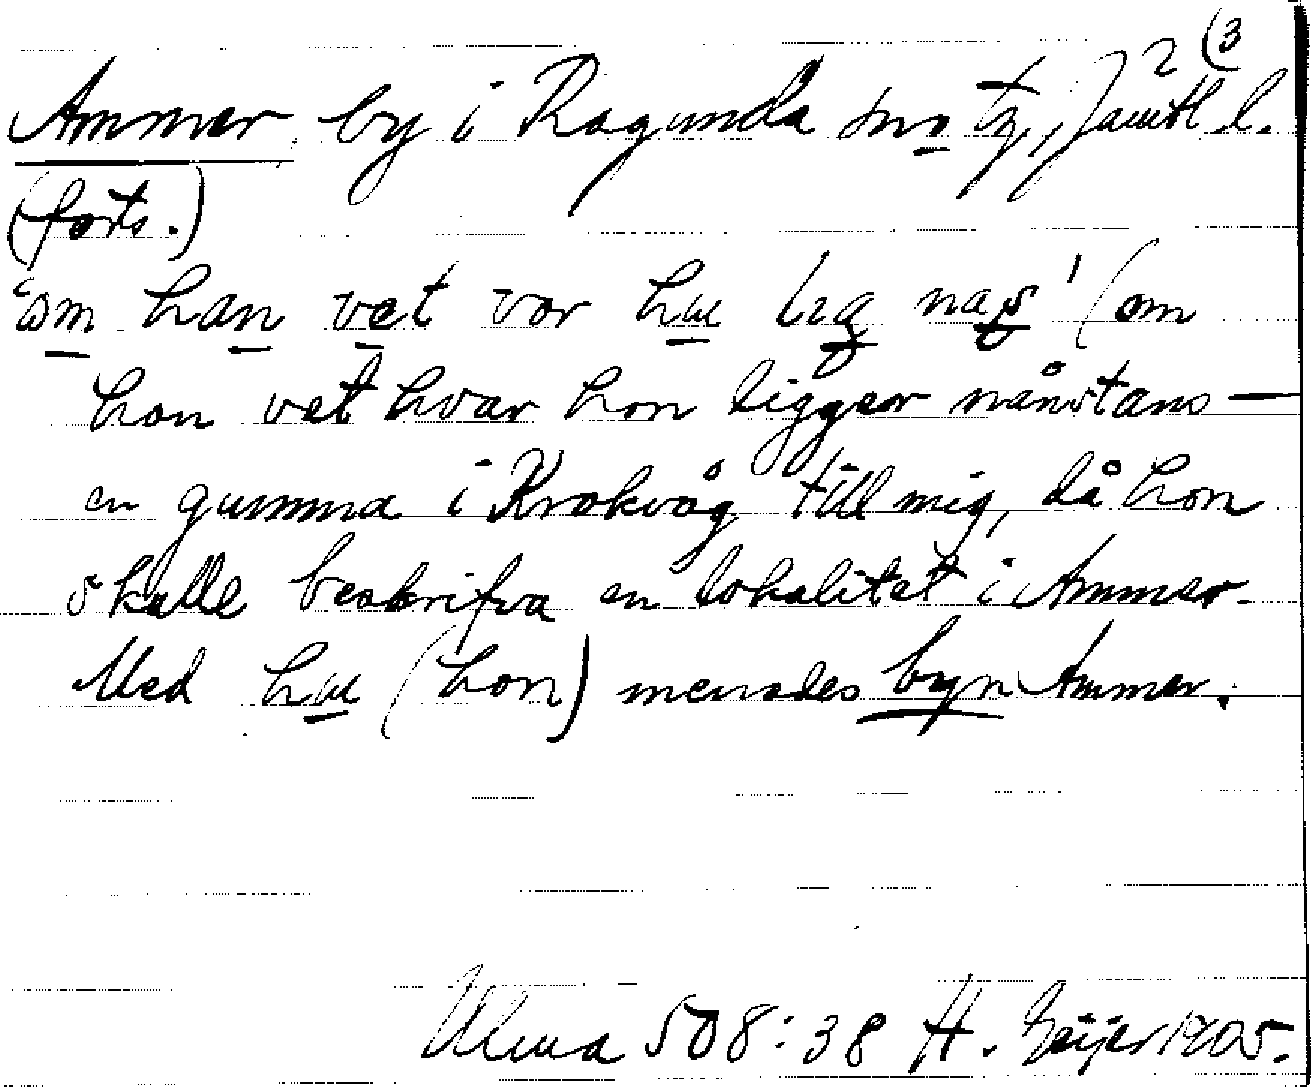 2 (3
Ammer by i Ragunda sn o tg, Jämtl l.
(forts.)
'om han vet vor hu lig nas' (om
hon vet hvar hon ligger nånstans —
en gumma i Krokvåg till mig, då hon
skulle beskrifva en lokalitet i Ammer.
Med hu (hon) menades byn Ammer.
Ulma 508:38 H. Geijer 1905.